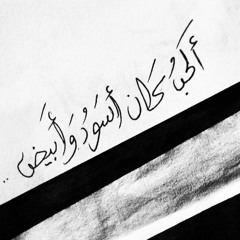 أَلحُبُ كان أسوَدُ وَ أبيَض ..